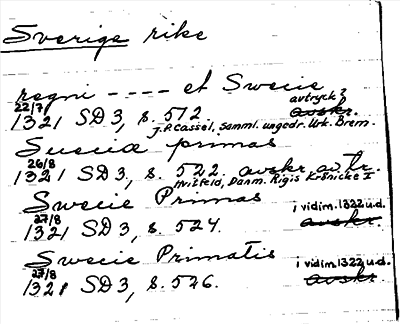 Sverige rike
regni ---- et Swecie
avtryck?
22/7
1321 SD3, s. 512 avskr.
J.P. Cassel, Samml. ungedr. Urk. Brem.
Sueciæ primas
26/8
1321 SD3, s. 522. avskr. avtr.
Hvitfeld, Danm. Rigis Krönicke I
Swecie Primas
27/8 i vidim. 1322 u.d.
1321 SD3, s. 524. avskr.
Swecie Primatis
27/8 i vidim. 1322 u.d.
1321 SD3, s. 526. avskr.